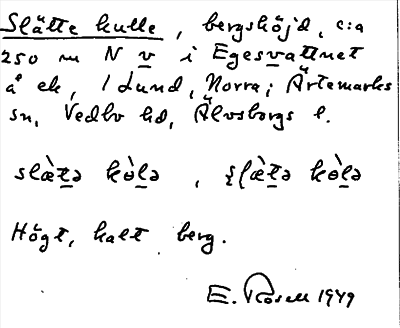 Slätte kulle, bergshöjd, c:a
250 m N v i Egesvattnet
å ek, 1 Lund, Norra; Ärtemarks
sn, Vedbo hd, Älvsborgs l.
slæ̀tə kòlə,
Högt, kalt berg.
E. Rosell 1949